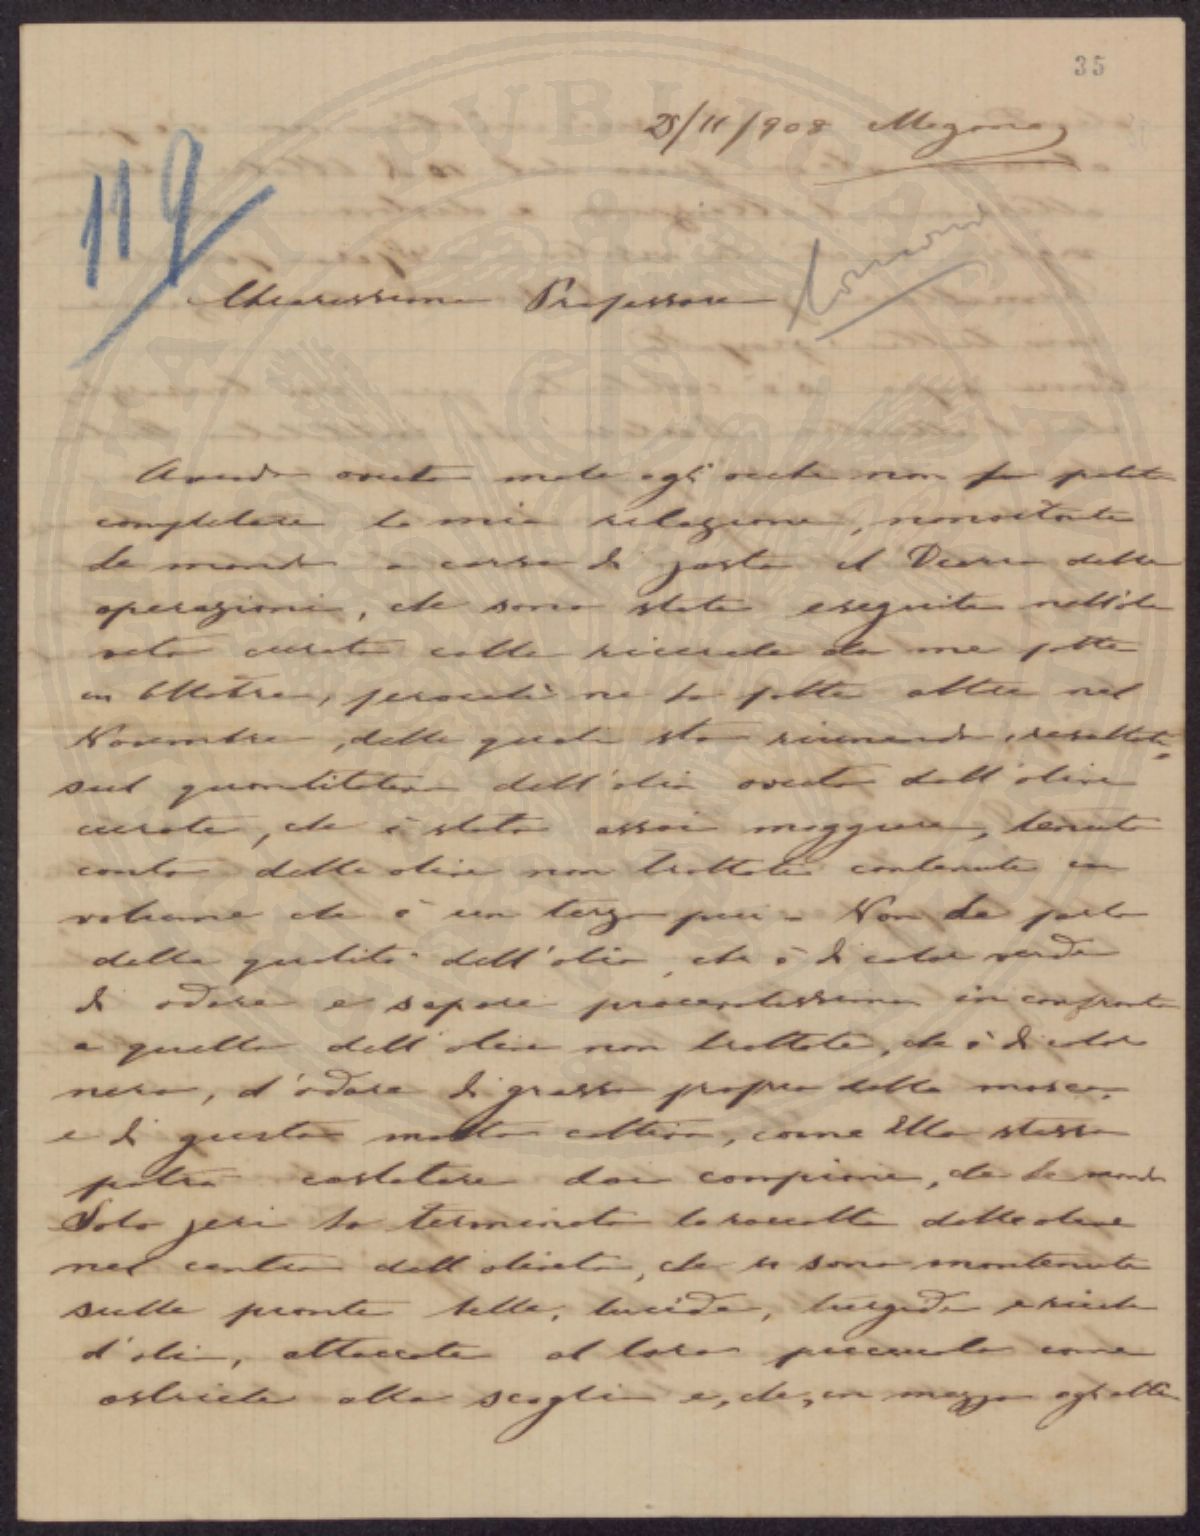 35
28/11/908 Mezzana
119
Chiarissimo Professore
Avendo avuto male agli occhi non ho potuto
completare la mia relazione, nonostante
le mando a corso di posta il Diario delle
operazioni, che sono state eseguite nell'oli
veto curato colle ricerche da me fatte
in Ottobre, perocchè ne ho fatte altre nel
Novembre, delle quali sto riunendo i resultati
sul quantitativo dell'olio avuto dall'olive
curate, che è stato assai maggiore, tenuto
conto delle olive non trattate contenute in
volume che è un terzo più. Non Le parlo
della qualità dell'olio, che è di color verde
di odore e sapore piacentissimo in confronto
a quello dell'olive non trattate, che è di color
nero, d'odore di grasso proprio della mosca,
e di gusto molto cattivo, come Ella stessa
potrà costatare dai campioni, che Le mando
Solo jeri ho terminato la raccolta delle olive
nel centro dell'oliveto, che si sono mantenute
sulle piante belle, lucide, turgide e ricche
d'olio, attaccate al loro peduncolo come
ostriche allo scoglio e, che, in mezzo agli altri